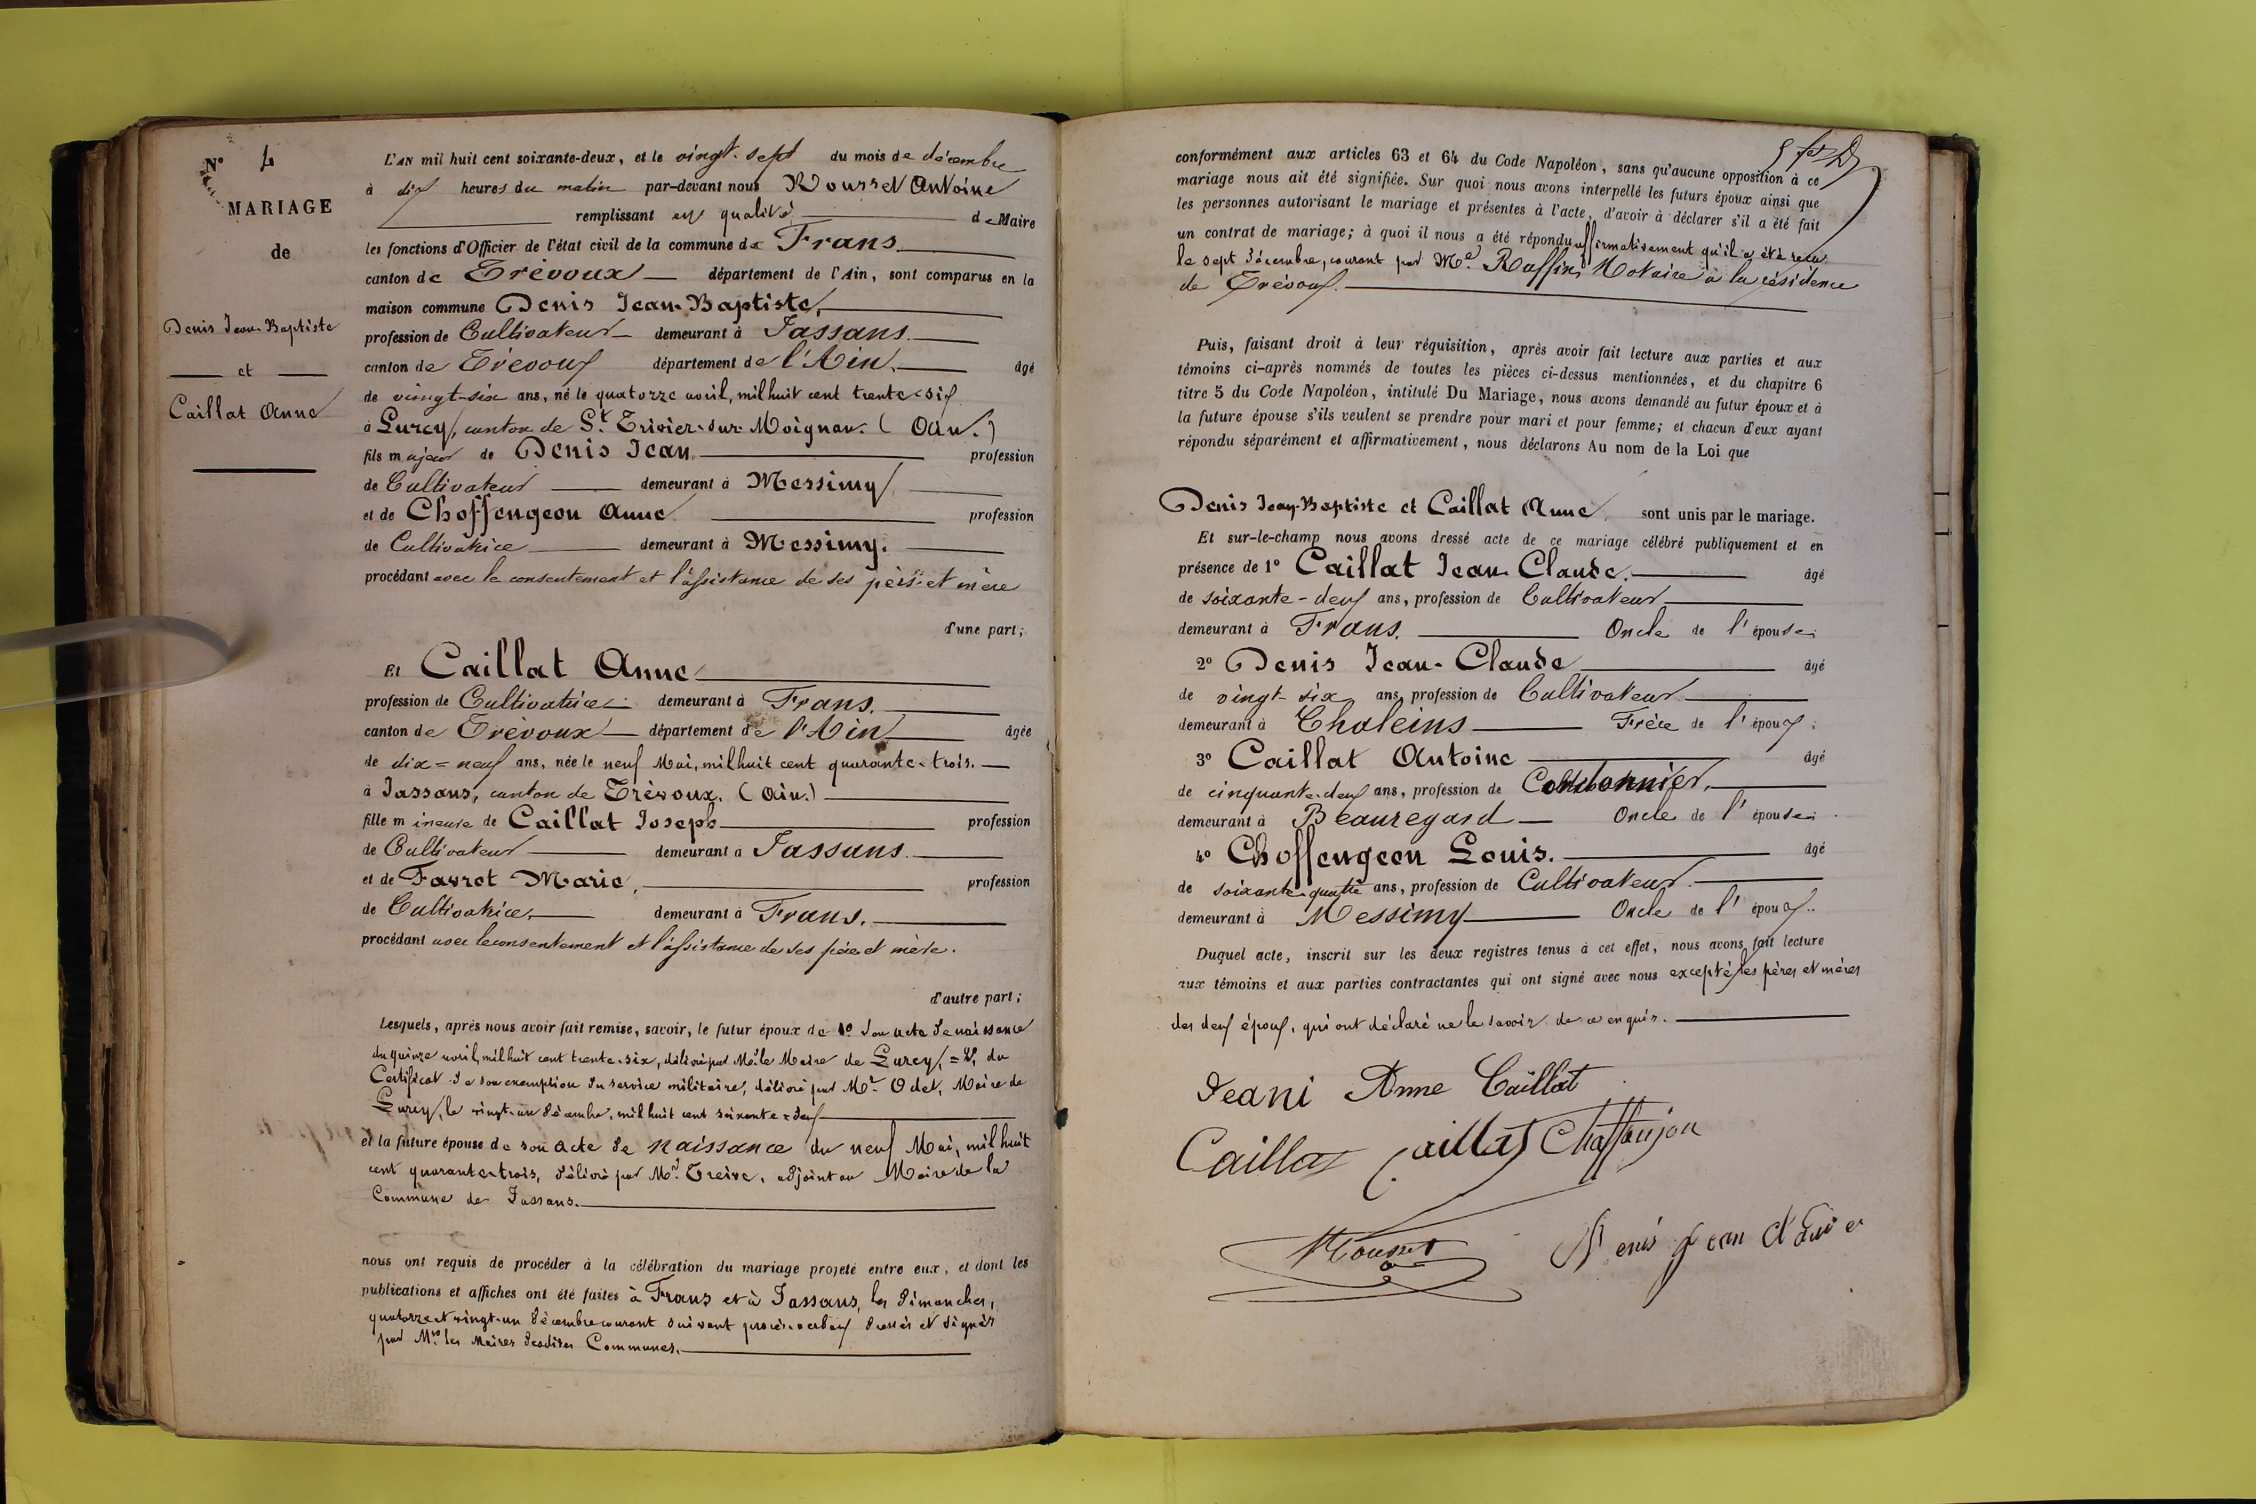 N° 4
MARIAGE
de
Denis Jean-Baptiste
et
Caillat Anne
L'AN mil huit cent soixante-deux, et le vingt-sept du mois de décembre
à dix heures du matin par-devant nous Rousset Antoine
remplissant en qualité de Maire
les fonctions d'Officier de l'état civil de la commune de Frans
canton de Trévoux département de l'Ain, sont comparus en la
maison commune Denis Jean-Baptiste,
profession de Cultivateur demeurant à Jassans
canton de Trévoux département de l'Ain, âgé
de vingt-six ans, né le quatorze avril, mil huit cent trente-six
à Lurcy, canton de St Trivier-sur-Moignan. (Ain.)
fils majeur de Denis Jean profession
de Cultivateur demeurant à Messimy
et de Choffengeon Anne profession
de Cultivatrice demeurant à Messimy.
procédant avec le consentement et l'assistance de ses père et mère
d'une part;
Et Caillat Anne
profession de Cultivatrice demeurant à Frans.
canton de Trévoux département de l'Ain âgée
de dix=neuf ans, née le neuf Mai, mil huit cent quarante-trois.
à Jassans, canton de Trévoux. (Ain.)
fille mineure de Caillat Joseph profession
de Cultivateur demeurant à Jassans.
et de Favrot Marie, profession
de Cultivatrice, demeurant à Frans.
procédant avec le consentement et l'assistance de ses père et mère.
d'autre part;
Lesquels, après nous avoir fait remise, savoir, le futur époux de 1° Son acte de naissance
du quinze avril, mil huit cent trente-six, délivré par Mr le Maire de Lurcy, =2°, du
Certificat de son exemption du service militaire, délivré par Mr Odet, Maire de
Lurcy, le vingt-un décembre, mil huit cent soixante=deux
et la future épouse de son acte de naissance du neuf Mai, mil huit
cent quarante-trois, délivré par Mr Treive, adjoint au Maire de la
Commune de Jassans.
nous ont requis de procéder à la célébration du mariage projeté entre eux, et dont les
publications et affiches ont été faites à Frans et à Jassans, les dimanches,
quatorze et vingt-un décembre courant suivant procès-verbaux dressés et signés
par Mrs les Maires desdites Communes.
conformément aux articles 63 et 64 du Code Napoléon, sans qu'aucune opposition à ce
mariage nous ait été signifiée. Sur quoi nous avons interpellé les futurs époux ainsi que
les personnes autorisant le mariage et présentes à l'acte, d'avoir à déclarer s'il a été fait
un contrat de mariage; à quoi il nous a été répondu affirmativement qu'il a été reçu
le sept décembre, courant par Me Ruffin, Notaire à la résidence
de Trévoux.
Puis, faisant droit à leur réquisition, après avoir fait lecture aux parties et aux
témoins ci-après nommés de toutes les pièces ci-dessus mentionnées, et du chapitre 6
titre 5 du Code Napoléon, intitulé Du Mariage, nous avons demandé au futur époux et à
la future épouse s'ils veulent se prendre pour mari et pour femme; et chacun d'eux ayant
répondu séparément et affirmativement, nous déclarons Au nom de la Loi que
Denis Jean-Baptiste et Caillat Anne sont unis par le mariage.
Et sur-le-champ nous avons dressé acte de ce mariage célébré publiquement et en
présence de 1° Caillat Jean-Claude. âgé
de soixante-deux ans, profession de Cultivateur
demeurant à Frans. Oncle de l'épouse
2° Denis Jean-Claude âgé
de vingt six ans, profession de Cultivateur
demeurant à Chaleins Frère de l'époux;
3° Caillat Antoine âgé
de cinquante-deux ans, profession de
demeurant à Beauregard Oncle de l'épouse
4° Choffengeon Louis. âgé
de soixante-quatre ans, profession de Cultivateur
demeurant à Messimy Oncle de l'époux.
Duquel acte, inscrit sur les deux registres tenus à cet effet, nous avons fait lecture
aux témoins et aux parties contractantes qui ont signé avec nous excepté les pères et mères
des deux époux, qui ont déclaré ne le savoir de ce enquis.
Deani Anne Caillat
Caillat Caillat Chaffanjon
Rousset Denis Jean Claude